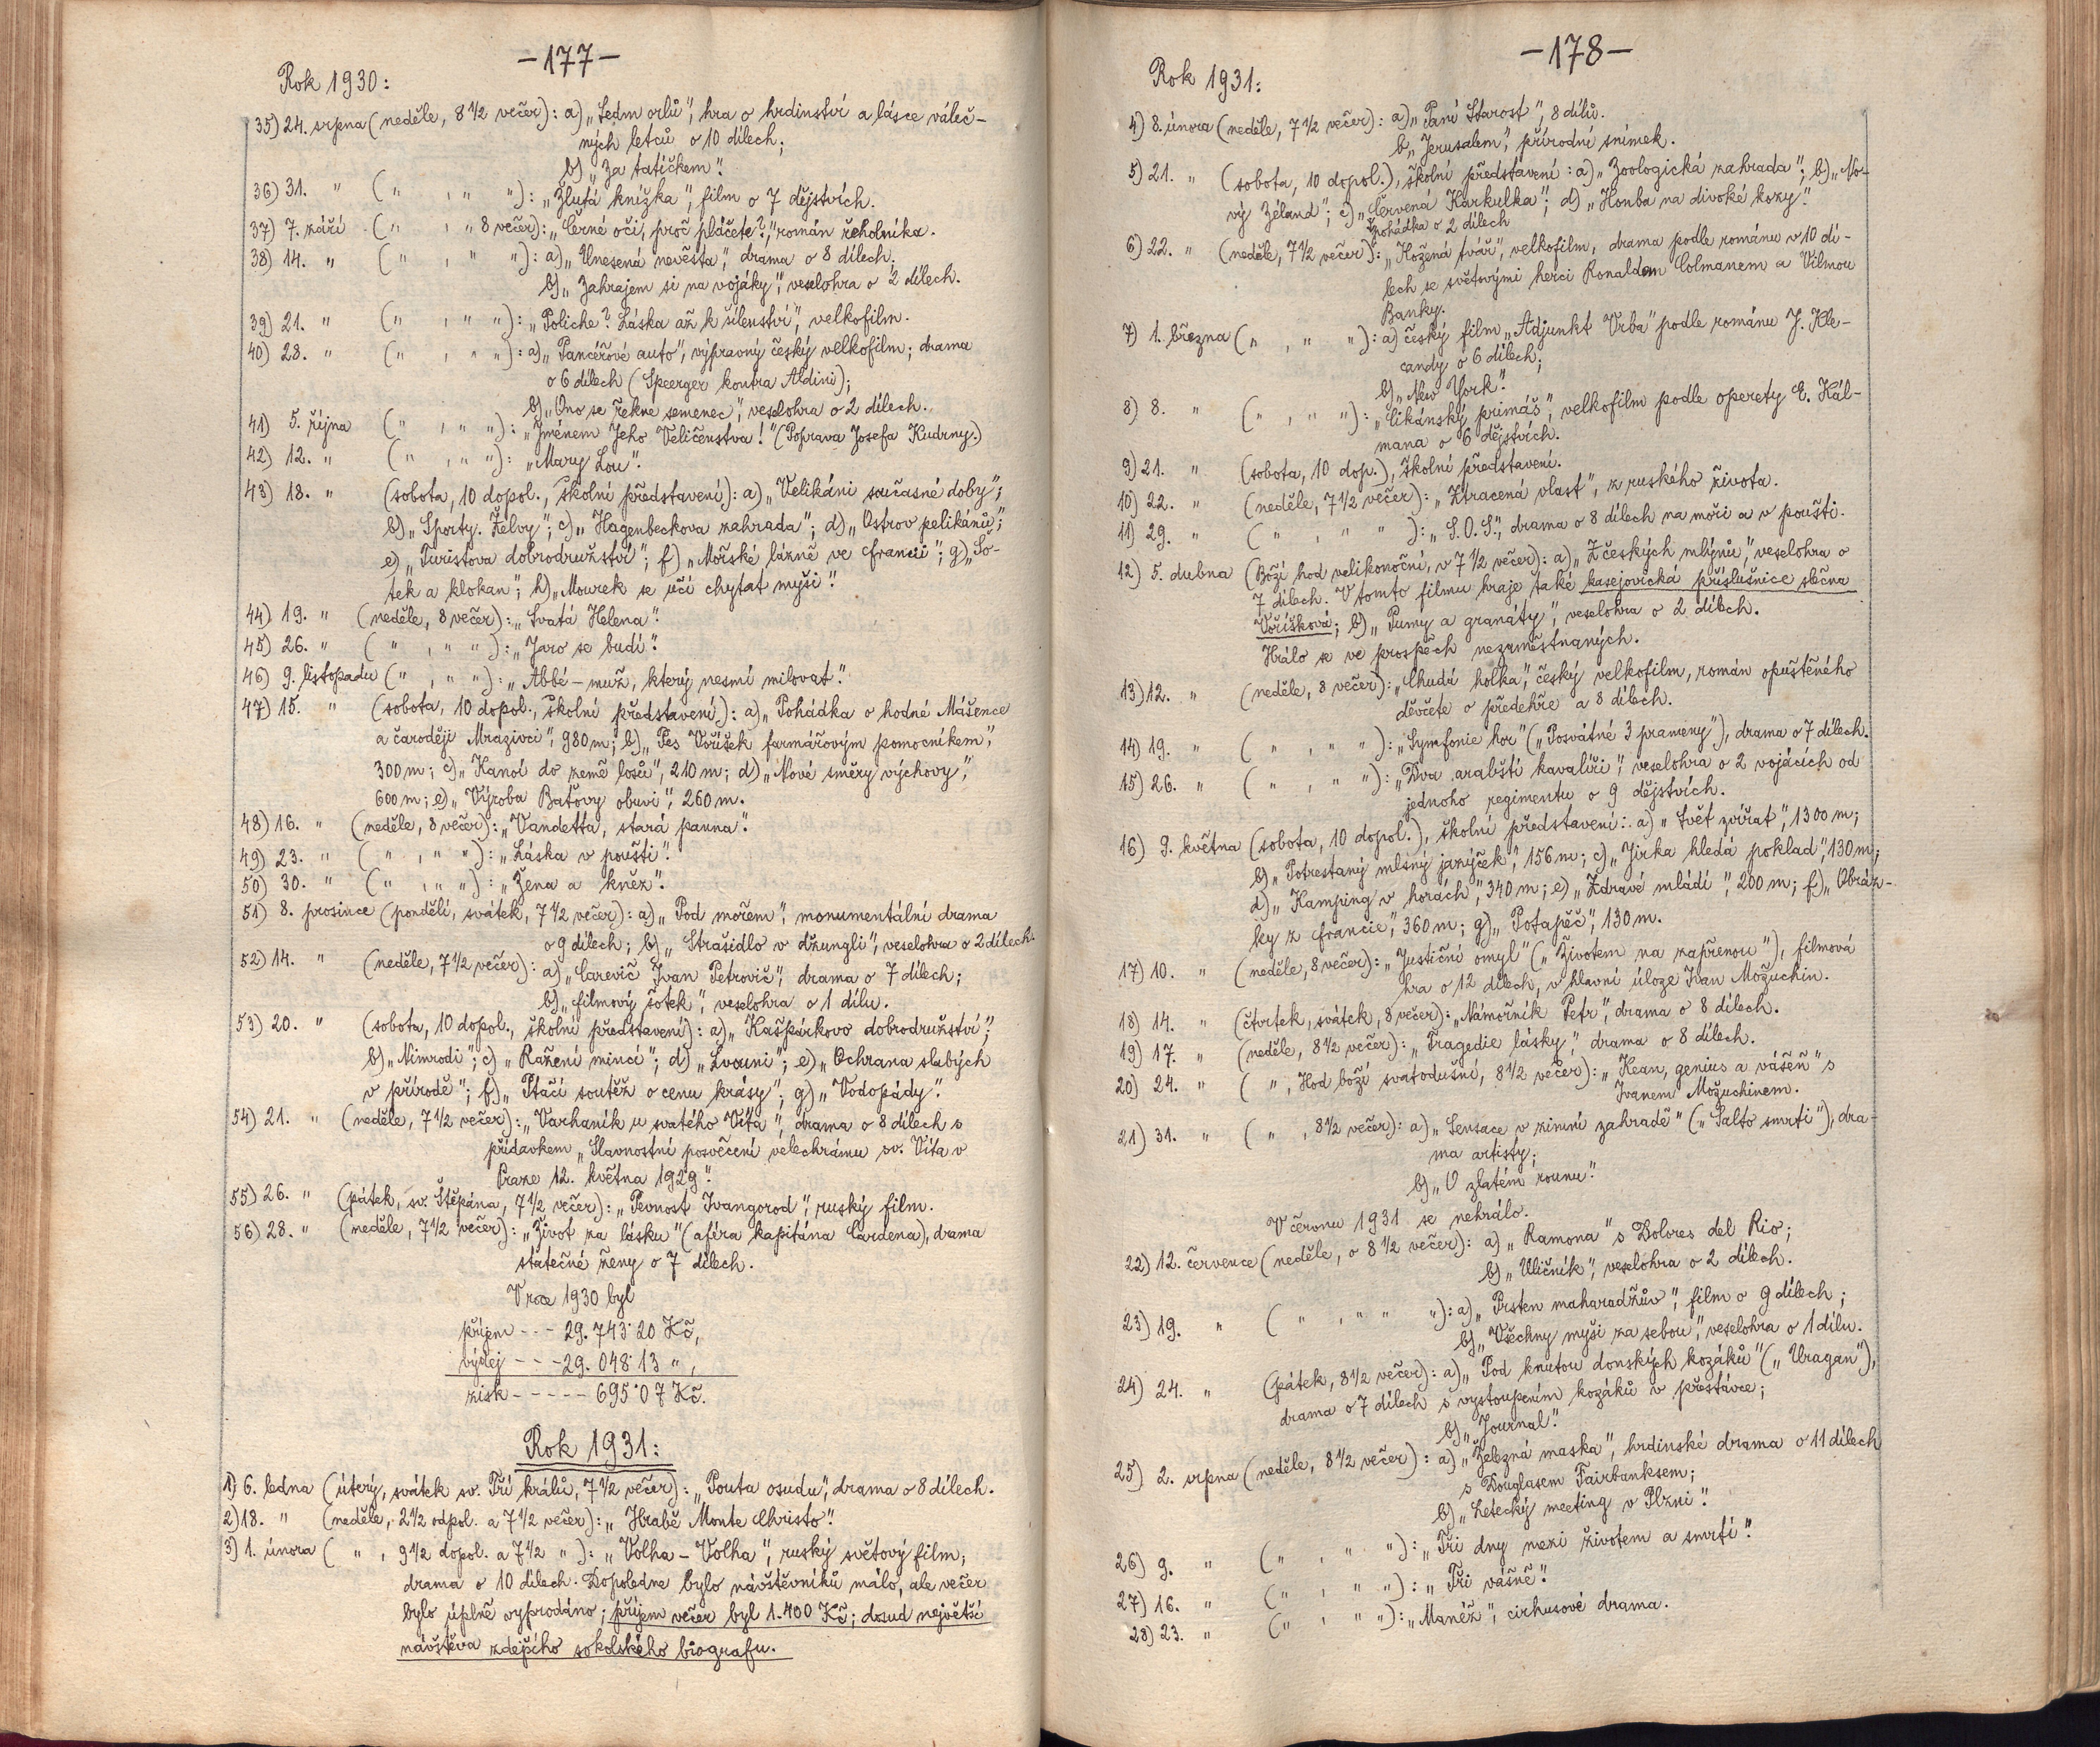 —177—
Rok 1930:
35) 24. srpna (neděle, 8 1/2 večer): a) „Sedm orlů", hra o hrdinství a lásce váleč-
ných letců o 10 dílech;
b) „Za tatíčkem".
36) 31. " ( " , " " ): „Žlutá knížka", film o 7 dějstvích.
37) 7. září ( " , " 8 večer): „Černé oči, proč pláčete?", román řeholníka.
38) 14. " ( " , " " ): a) „Unesená nevěsta", drama o 8 dílech;
b) „Zahrajem si na vojáky", veselohra o 2 dílech.
39) 21. " ( " , " " ): „Poliche? Láska až k šílenství", velkofilm.
40) 28. " ( " , " " ): a) „Pancéřové auto", výpravný český velkofilm; drama
o 6 dílech (Speerger kontra Aldini);
b) „Ono se řekne semenec", veselohra o 2 dílech.
41) 5. října ( " , " " ): „Jménem Jeho Veličenstva!" (Poprava Josefa Kudrny.)
42) 12. " ( " , " " ): „Mary Lou".
43) 18. " (sobota, 10 dopol., školní představení): a) „Velikáni současné doby";
b) „Sporty. Želvy"; c) „Hagenbeckova zahrada"; d) „Ostrov pelikánů";
e) „Turistova dobrodružství"; f) „Mořské lázně ve Francii"; g) „Šo-
tek a klokan"; h) „Mourek se učí chytat myši".
44) 19. " (neděle, 8 večer): „Svatá Helena".
45) 26. " ( " , " " ): „Jaro se budí".
46) 9. listopadu ( " , " " ): „Abbé – muž, který nesmí milovat".
47) 15. " (sobota, 10 dopol., školní představení): a) „Pohádka o hodné Mášence
a čaroději Mrazivci", 980 m; b) „Pes Voříšek farmářovým pomocníkem",
300 m; c) „Kanoí do země losů", 210 m; d) „Nové směry výchovy",
600 m; e) „Výroba Baťovy obuvi", 260 m.
48) 16. " (neděle, 8 večer): „Vandetta, stará panna".
49) 23. " ( " , " " ): „Láska v poušti".
50) 30. " ( " , " " ): „Žena a kněz".
51) 8. prosince (pondělí, svátek, 7 1/2 večer): a) „Pod mořem", monumentální drama
o 9 dílech; b) „Strašidlo v džungli", veselohra o 2 dílech.
52) 14. " (neděle, 7 1/2 večer): a) „Carevič Ivan Petrovič", drama o 7 dílech;
b) „Filmový šotek", veselohra o 1 dílu.
53) 20. " (sobota, 10 dopol., školní představení): a) „Kašpárkovo dobrodružství";
b) „Nimrodi"; c) „Ražení mincí"; d) „Lvouni"; e) „Ochrana slabých
v přírodě"; f) „Ptačí soutěž o cenu krásy"; g) „Vodopády".
54) 21. " (neděle, 7 1/2 večer): „Varhaník u svatého Víta", drama o 8 dílech s
přídavkem „Slavnostní posvěcení velechrámu sv. Víta v
Praze 12. května 1929".
55) 26. " (pátek, sv. Štěpána, 7 1/2 večer): „Pevnost Ivangorod", ruský film.
56) 28. " (neděle, 7 1/2 večer): „Život za lásku" (aféra kapitána Cardena), drama
statečné ženy o 7 dílech.
V roce 1930 byl
příjem - - - 29.743·20 Kč,
výdej - - - 29.048·13 " ,
zisk - - - - - 695·07 Kč.
Rok 1931:
1) 6. ledna (úterý, svátek sv. Tří králů, 7 1/2 večer): „Pouta osudu", drama o 8 dílech.
2) 18. " (neděle, 2 1/2 odpol. a 7 1/2 večer): „Hrabě Monte Christo".
3) 1. února ( " , 9 1/2 dopol. a 7 1/2 " ): „Volha – Volha", ruský světový film;
drama o 10 dílech. Dopoledne bylo návštěvníků málo, ale večer
bylo úplně vyprodáno; příjem večer byl 1.400 Kč; dosud největší
návštěva zdejšího sokolského biografu.
—178—
Rok 1931:
4) 8. února (neděle, 7 1/2 večer): a) „Paní Starost", 8 dílů.
b) „Jerusalem", přírodní snímek.
5) 21. " (sobota, 10 dopol.), školní představení: a) „Zoologická zahrada"; b) „No-
vý Zéland"; c) „Červená Karkulka"; d) „Honba na divoké kozy".
pohádka o 2 dílech
6) 22. " (neděle, 7 1/2 večer): „Kožená tvář", velkofilm, drama podle románu v 10 dí-
lech se světovými herci Ronaldem Colmanem a Vilmou
Banky.
7) 1. března ( " , " " ): a) český film „Adjunkt Vrba" podle románu J. Kle-
candy o 6 dílech;
b) „New York".
8) 8. " ( " , " " ): „Cikánský primáš", velkofilm podle operety E. Kál-
mana o 6 dějstvích.
9) 21. " (sobota, 10 dop.), školní představení.
10) 22. " (neděle, 7 1/2 večer): „Ztracená vlast", z ruského života.
11) 29. " ( " , " " ): „S.O.S.", drama o 8 dílech na moři a v poušti.
12) 5. dubna (Boží hod velikonoční, v 7 1/2 večer): a) „Z českých mlýnů", veselohra o
7 dílech. V tomto filmu hraje také kasejovická příslušnice slečna
Voříšková; b) „Pumy a granáty", veselohra o 2 dílech.
Hrálo se ve prospěch nezaměstnaných.
13) 12. " (neděle, 8 večer): „Chudá holka", český velkofilm, román opuštěného
děvčete o předehře a 8 dílech.
14) 19. " ( " , " " ): „Symfonie hor" („Posvátné 3 prameny"), drama o 7 dílech.
15) 26. " ( " , " " ): „Dva arabští kavalíři", veselohra o 2 vojácích od
jednoho regimentu o 9 dějstvích.
16) 9. května (sobota, 10 dopol.), školní představení: a) „Svět zvířat", 1300 m;
b) „Potrestaný mlsný jazýček", 156 m; c) „Jirka hledá poklad", 130 m;
d) „Kamping v horách", 340 m; e) „Zdravé mládí", 200 m; f) „Obráz-
ky z Francie", 360 m; g) „Potapěč", 130 m.
17) 10. " (neděle, 8 večer): „Justiční omyl" („Životem na zapřenou"), filmová
hra o 12 dílech, v hlavní úloze Ivan Možuchin.
18) 14. " (čtvrtek, svátek, 8 večer): „Námořník Petr", drama o 8 dílech.
19) 17. " (neděle, 8 1/2 večer): „Tragedie lásky", drama o 8 dílech.
20) 24. " ( " , Hod boží svatodušní, 8 1/2 večer): „Kean, genius a vášeň" s
Ivanem Možuchinem.
21) 31. " ( " , 8 1/2 večer): a) „Sensace v zimní zahradě" („Salto smrti"), dra-
ma artisty;
b) „O zlatém rounu".
V červnu 1931 se nehrálo.
22) 12. července (neděle, o 8 1/2 večer): a) „Ramona" s Dolores del Rio;
b) „Uličník", veselohra o 2 dílech.
23) 19. " ( " , " " " ): a) „Prsten maharadžův", film o 9 dílech;
b) „Všechny myši za sebou", veselohra o 1 dílu.
24) 24. " (pátek, 8 1/2 večer): a) „Pod knutou donských kozáků" („Uragan"),
drama o 7 dílech s vystoupením kozáků v přestávce;
b) „Journal".
25) 2. srpna (neděle, 8 1/2 večer): a) „Železná maska", hrdinské drama o 11 dílech
s Douglasem Fairbanksem;
b) „Letecký meeting v Plzni".
26) 9. " ( " , " " ): „Tři dny mezi životem a smrtí".
27) 16. " ( " , " " ): „Tři vášně".
28) 23. " ( " , " " ): „Manéž", cirkusové drama.